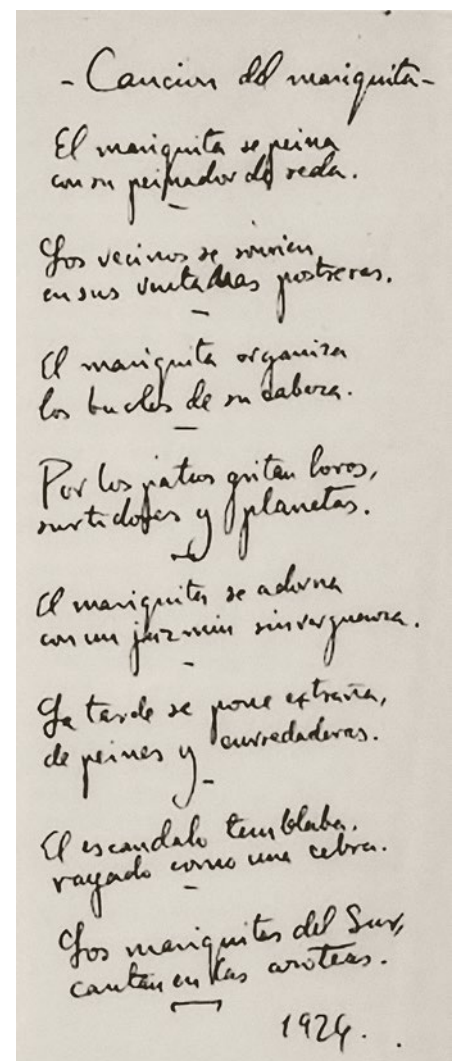 - Cancion del mariquita -
El mariquita se peina
con su peinador de seda.
-
Los vecinos se sonrien
en sus ventanas postreras.
-
El mariquita organiza
los bucles de su cabeza.
-
Por los patios gritan loros,
surtidores y planetas.
-
El mariquita se adorna
con un jazmin sinverguenza.
-
La tarde se pone extraña,
de peines y enredaderas.
-
El escandalo temblaba,
rayado como una cebra.
-
Los mariquitas del Sur,
cantan en las azoteas.
1924.